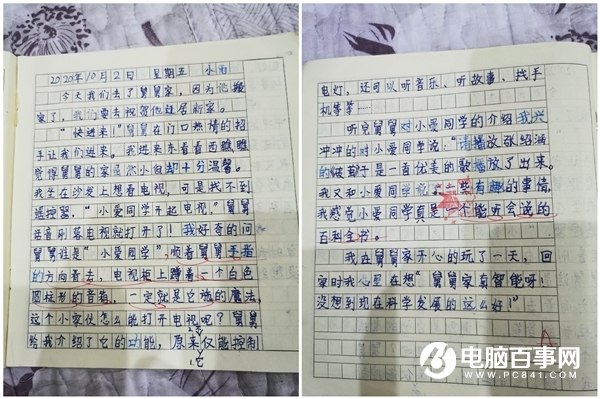 2020年10月2日 星期五 小雨
今天我们去了舅舅家，因为他搬
家了，我们要去祝贺他迁居新家。
“快进来！”舅舅在门口热情的招
手让我们进来。我进来东看看西瞧瞧
觉得舅舅的家虽然小但却十分温馨。
我坐在沙发上想看电视，可是找不到
遥控器，“小爱同学开起电视，”舅舅
话音刚落电视就打开了！我好奇的问
舅舅谁是“小爱同学”，顺着舅舅手指
的方向看去，电视柜上蹲着一个白色
圆柱形的音箱，一定就是它施的魔法，
这个小家伙怎么能打开电视呢？舅舅
给我介绍了它的功能，原来仅能控制
1.它
电灯，还可以听音乐、听故事、找手
机等等……
听完舅舅对小爱同学的介绍我兴
冲冲的对小爱同学说：“请播放张韶涵
的”被子于是一首优美的歌播放了出来。
我又和小爱同学说了一些有趣的事情，
我感觉小爱同学真是一个能听会说的
百科全书。
我在舅舅家开心的玩了一天，回
家时我心里在想“舅舅家真智能呀！
没想到现在科学发展的这么好！”
A
电脑百事网
WWW.PC841.COM